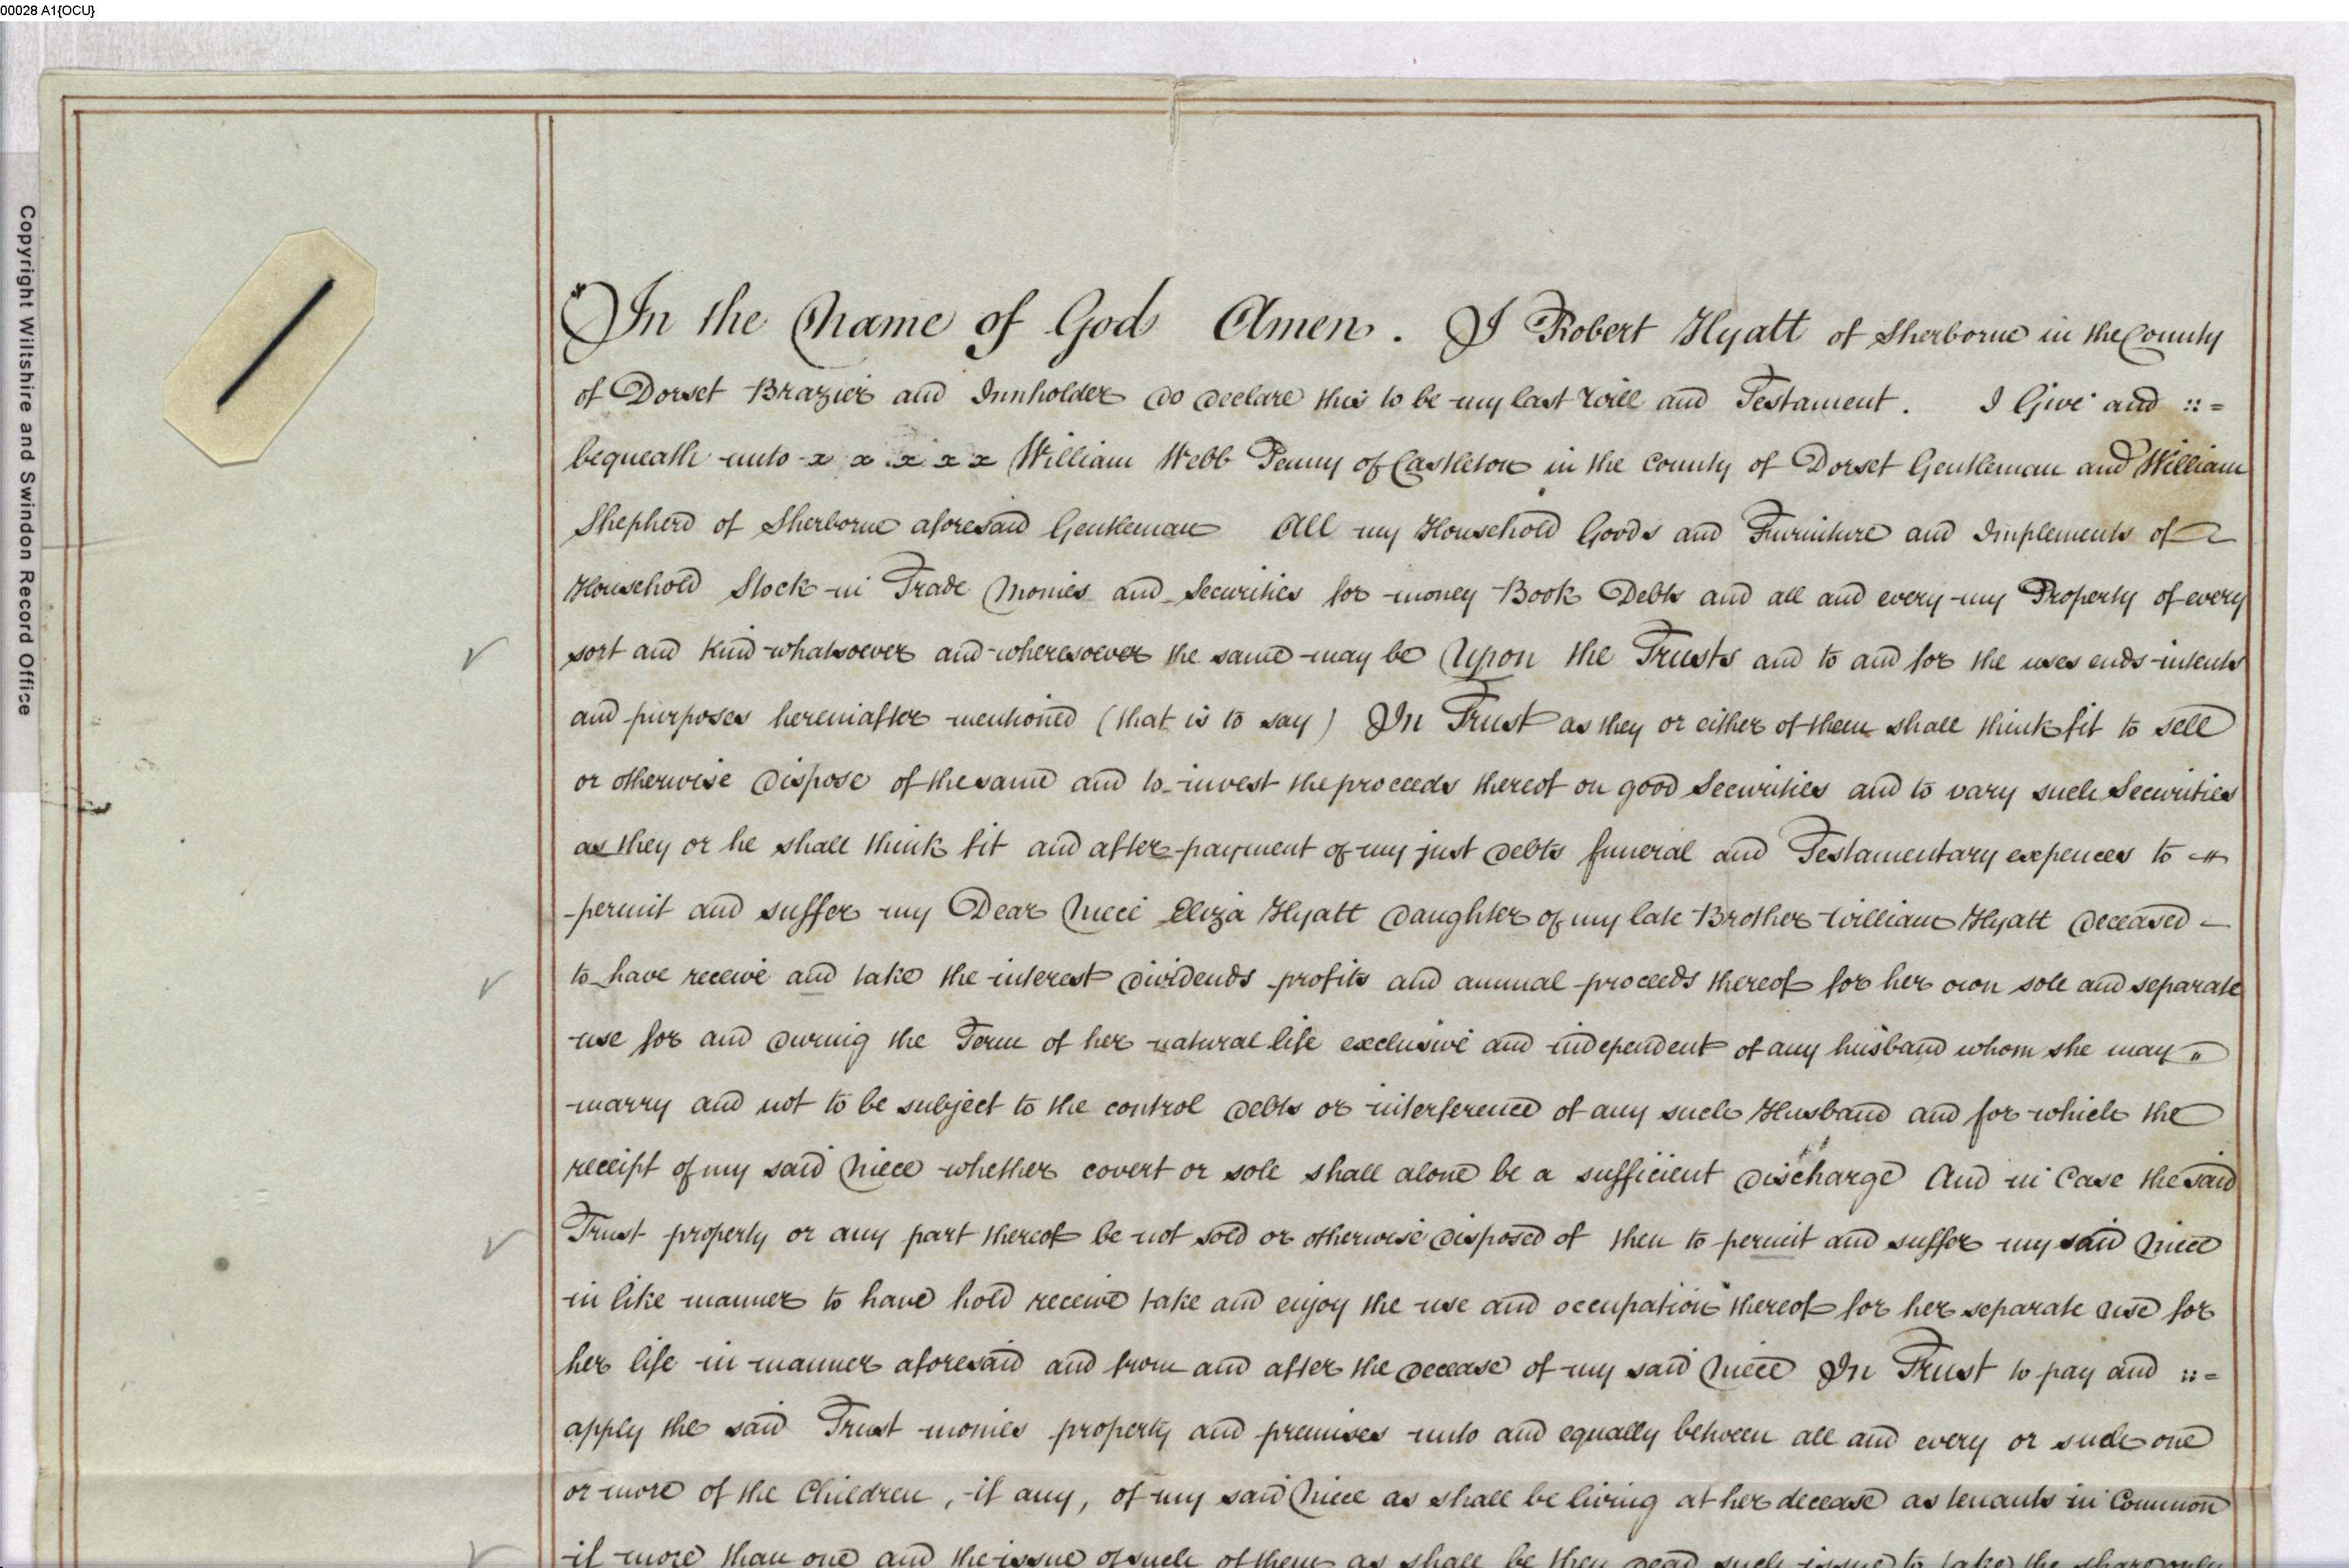 00028 A1{OCU}
Copyright Wiltshire and Swindon Record Office
In the Name of God Amen. I Robert Hyatt of Sherborne in the County
of Dorset Brazier and Innholder do declare this to be my last Will and Testament. I Give and ::=
bequeath unto x x x x x William Webb Penny of Castleton in the County of Dorset Gentleman and William
Shepherd of Sherborne aforesaid Gentleman All my Household Goods and Furniture and Implements of
Household Stock in Trade Monies and Securities for money Book Debts and all and every my Property of every
sort and kind whatsoever and wheresoever the same may be Upon the Trusts and to and for the uses ends intents
and purposes hereinafter mentioned (that is to say) In Trust as they or either of them shall think fit to sell
or otherwise dispose of the same and to invest the proceeds thereof on good Securities and to vary such Securities
as they or he shall think fit and after payment of my just debts funeral and Testamentary expences to
permit and suffer my Dear Niece Eliza Hyatt daughter of my late Brother William Hyatt deceased –
to have receive and take the interest dividends profits and annual proceeds thereof for her own sole and separate
use for and during the Term of her natural life exclusive and independent of any husband whom she may "
marry and not to be subject to the control debts or interference of any such Husband and for which the
receipt of my said Niece whether covert or sole shall alone be a sufficient discharge And in Case the said
Trust property or any part thereof be not sold or otherwise disposed of then to permit and suffer my said Niece
in like manner to have hold receive take and enjoy the use and occupation thereof for her separate use for
her life in manner aforesaid and from and after the decease of my said Niece In Trust to pay and ::=
apply the said Trust monies property and premises unto and equally between all and every or such one
or more of the Children, if any, of my said Niece as shall be living at her decease as tenants in Common
if more than one and the issue of such of them as shall be then dead such issue to take the share only